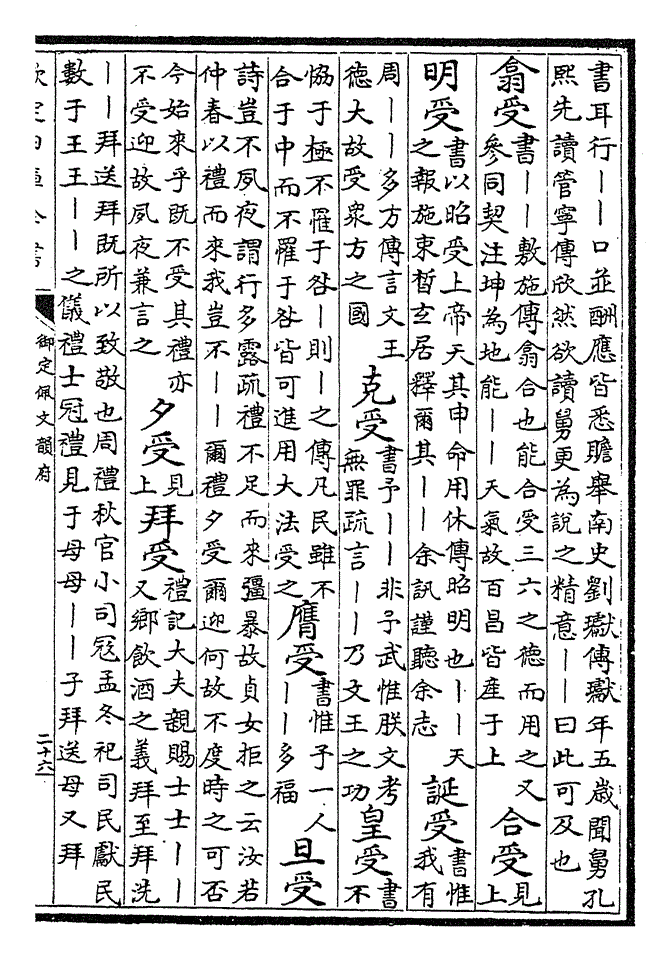 書耳行丨丨口並酬應皆悉贍舉南史劉瓛傳瓛年五歳聞舅孔
熙先讀管寧傳欣然欲讀舅更為說之精意丨丨曰此可及也
翕受書丨丨敷施傳翕合也能合受三六之德而用之又參同契注坤為地能丨丨天氣故百昌皆産于上合受見上
明受書以昭受上帝天其申命用休傳昭明也丨丨天之報施束晳玄居釋爾其丨丨余訊謹聽余志誕受書惟我有
周丨丨多方傳言文王德大故受衆方之國克受書予丨丨非予武惟朕文考無罪疏言丨丨乃文王之功皇受書不
協于極不罹于咎丨則丨之傳凡民雖不合于中而不罹于咎皆可進用大法受之膺受書惟予一人丨丨多福旦受
詩豈不夙夜謂行多露疏禮不足而來彊暴故貞女拒之云汝若
仲春以禮而來我豈不丨丨爾禮夕受爾迎何故不度時之可否
今始來乎既不受其禮亦不受迎故夙夜兼言之夕受見上拜受禮記大夫親賜士士丨丨又鄉飲酒之義拜至拜洗
丨丨拜送拜既所以致敬也周禮秋官小司寇孟冬祀司民獻民
數于王王丨丨之儀禮士冠禮見于母母丨丨子拜送母又拜
欽定四庫全書
御定佩文韻府
二十六